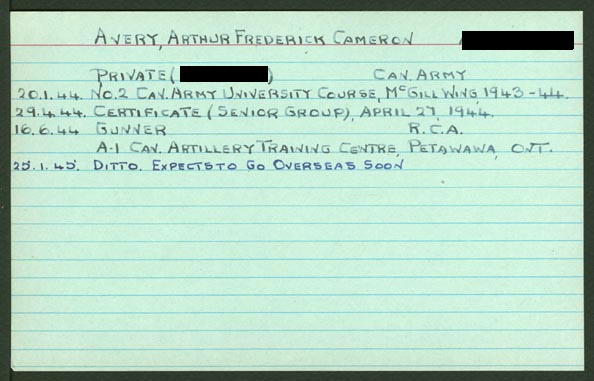 AVERY, ARTHUR FREDERICK CAMERON
PRIVATE ( ) CAN. ARMY
20.1.44. NO.2 CAN. ARMY UNIVERSITY COURSE, McGILL WING 1943-44.
29.4.44. CERTIFICATE (SENIOR GROUP), APRIL 27, 1944.
16.6.44 GUNNER R.C.A.
A-1 CAN. ARTILLERY TRAINING CENTRE, PETAWAWA, ONT.
25.1.45. DITTO. EXPECTS TO GO OVERSEAS SOON